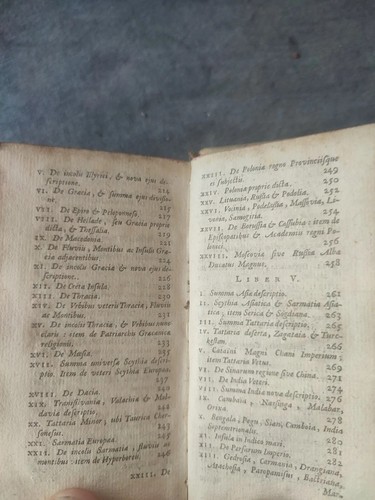 V. De incolis Illyrici, & nova ejus de-
scriptione.
VI. De Græcia, & summa ejus divisio-
ne.
VII. De Epiro & Peloponneso.
VIII. De Hellade, seu Græcia propriè
dicta, & Thessalia. 219
IX. De Macedonia. 221
X. De Fluviis, Montibus ac Insulis Græ-
ciæ adjacentibus 224
XI. De incolis Græciæ & nova ejus de-
scriptione. 226
XII. De Creta Insula. 228
XIII. De Thracia. 230
XIV. De Urbibus veteris Thraciæ, Fluviis
ac Montibus. 231
XV. De incolis Thraciæ, & Urbibus nunc
claris: item de Patriarchis Græcanica
religionis. 233
XVI. De Mœsia. 235
XVII. Summa universæ Scythiæ descri-
ptio. Item de veteri Scythia Europæa.
237
XVIII. De Dacia.
XIX. Transilvania, Valachia & Mol-
davia descriptio.
XX. Tartaria Minor, ubi Taurica Cher-
sonesus. 243
XXI. Sarmatia Europæa. 245
XXII. De incolis Sarmatiæ, fluviis ac
montibus: item de Hyperboreis. 246
XXIII. De
XXIII. De Polonia regno Provinciisque
ei subjectis. 249
XXIV. Polonia propriè dicta. 250
XXV. Lituania, Russia & Podolia. 252
XXVI. Volinia, Podelassia, Massovia, Li-
vonia, Samogitia. 254
XXVII. De Borussia & Cassubia: item de
Episcopatibus & Academiis regni Po-
lonici. 256
XXVIII. Moscovia sive Russia Alba
Ducatus Magnus. 258
LIBER V.
I. Summa Asiæ descriptio. 261
II. Scythia Asiatica & Sarmatia Asia-
tica, item Serica & Sogdiana. 263
III. Summa Tattariæ descriptio. 265
IV. Tattaria deserta, Zagataia & Turk-
estan. 266
V. Cataini Magni Chani Imperium;
item Tattaria Vetus. 269
VI. De Sinarum regione sive China. 271
VII. De India Veteri. 274
VIII. Summa Indiæ nova descriptio. 276
IX. Cambaia, Narsinga, Malabar,
Orixa. 278
X. Bengala, Pegu, Siam, Camboia, India
280
XI. Insulæ in Indico mari. 281
XII. De Persarum Imperio. 282
XIII. Gedrosia, Carmania, Drangiana,
Arachosia, Paropamisus, Bactriana,
Mar-